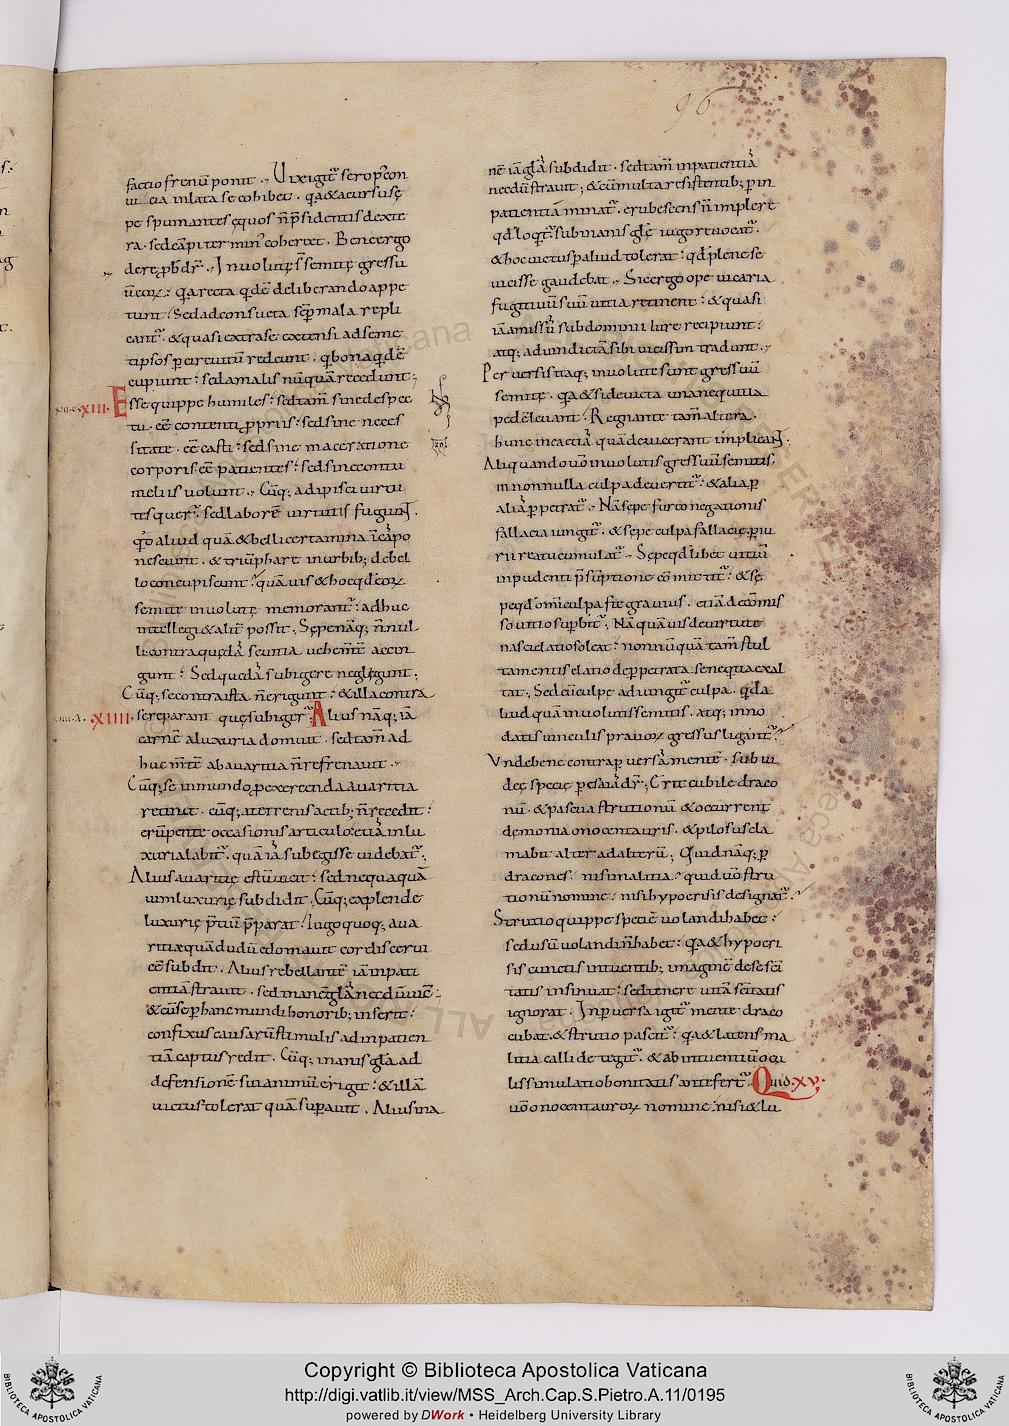 96
factio frenũ ponit. Vix igit̃ se rop̃eon
pe spumantes equos ñ p̃sidentis dexte
ra. sed cãpi ter min' cohercet. Bene ergo
tunt. Sed ad consueta sẽp mala repli
cant̃. & quasi extra se extensi ad seme
tipsos p circuitũ redeunt. q̃ bona qdẽ
cupiunt: sed a malis nũquã recedunt;
XIII. Esse quippe humiles: sed tam̃ sine despec
tu. eẽ contenti ppriis: sed sine neces
sitate. eẽ casti: sed sine maceratione
corporis. eẽ patientes: sed sine contu
meliis volunt. Cũq; adipisci virtu
tes quer̃. sed laborẽ virtutis fugiunt.
q̃ aliud quã & belli certamina ĩ cãpo
nesciunt. & triũphare in urbib; debel
lo concupiscunt. quãvis & hoc qd eoꝝ
semite involute memorant̃: adhuc
intellegi & alit̃ possit. Sepe nãq; ñnul
li contra quedã scutia vehemt̃ accin
gunt: Sed quedã subigere neglegunt;
Cũq; se contra ista ñ erigunt: & illa contra
XIIII. se reparant que subiger̃. Alius nãq; iã
carnẽ a luxuria domuit. sed tam̃ ad
huc mt̃e ab avaritia ñ refrenavit.
Cũq; se in mundo p exercenda avaritia
retinet. cũq; a terrenis actib; ñ recedit:
erũpente occasionis articulo: etiã in lu
xuria labit̃. quã iã subegisse videbat̃;
Alius avaritie estũ vicit: sed nequaquã
vim luxurie subdidit. Cũq; explende
luxurie p̃tiũ p̃parat: iugo quoq; ava
ritiæ quã dudũ edomavit cordis cervi
cẽ subdit. Alius rebellantẽ iã inpati
entiã stravit. sed inanẽ glã necdũ vicẽ:
& cũ se p hanc mundi honorib; inserit:
confixus causarũ stimulis ad inpatien
tiã captus redit. Cũq; inanis glã ad
defensionẽ sui animũ erigit: & illã
victus tolerat quã supavit. Alius ina
nẽ iã glã subdidit. sed tam̃ inpatientiã
necdũ stravit; & cũ multa resistentib; p in
patientiã minat̃. erubescens ñ implere
qd loq̃t̃. sub inanis gle iugo revocat̃.
& hoc victus p aliud tolerat: qd plene se
vicisse gaudebat. Sic ergo ope vicaria
fugitivũ suũ vitia retinent: & quasi
iã amissũ sub dominii iure recipiunt:
atq; ad vindictã sibi vicissim tradunt.
Perversis itaq; involute sunt gressuũ
semite. q̃a & si devicta una nequitia
pedẽ levant: Regnante tam̃ altera.
hunc in ea etiã quã devicerant implicant.
Aliquando võ involutis gressuũ semitis.
in nonnulla culpa devertit̃: & alia p
aliã p petrat̃. Nã sepe furto negationis
fallacia iungit̃. & sepe culpa fallacie. p iu
rii reatu cumulat̃. Sepe qdlibet vitiũ
inpudenti p̃sũptione cõmittit̃: & se
pe qd omi culpa fit gravius. etiã de cõmis
so vitio supbit̃; Nã quãvis de virtute
nasci elatio soleat: nonnũquã tam̃ stul
ta mentis elatio de ppetrata se nequitia exal
tat; Sed cũ culpe adiungit̃ culpa. q̃d a
liud quã involutis semitis. atq; inno
datis vinculis pravoꝝ gressus ligant̃?
Vnde bene contra pversã mentẽ. sub iu
dee specie p esaiã dr̃; Erit cubile draco
nũ. & pascua strutionũ & occurrent
demonia onocentauris. & pilosus cla
mabit alter ad alterũ; Quid nãq; p
dracones. nisi malitia? quid võ stru
tionũ nomine: nisi hypocrisis designat̃?
Strutio quippe speciẽ volandi habet:
sed usũ volandi ñ habet: q̃a & hypocri
sis cunctis intuentib; imaginẽ de se sci
tatis insinuat: sed tenere vitã scitatis
ignorat. In pversa igit̃ mente draco
cubat. & strutio pascit̃: q̃a & latens ma
litia callide tegit̃. & ab intuentiũ ocu
lis simulatio bonitatis antefert̃. Quid XV.
võ onocentauroꝝ nomine: nisi & lu
Copyright © Biblioteca Apostolica Vaticana
http://digi.vatlib.it/view/MSS_Arch.Cap.S.Pietro.A.11/0195
powered by DWork • Heidelberg University Library
BIBLIOTECA APOSTOLICA VATICANA
BIBLIOTECA APOSTOLICA VATICANA